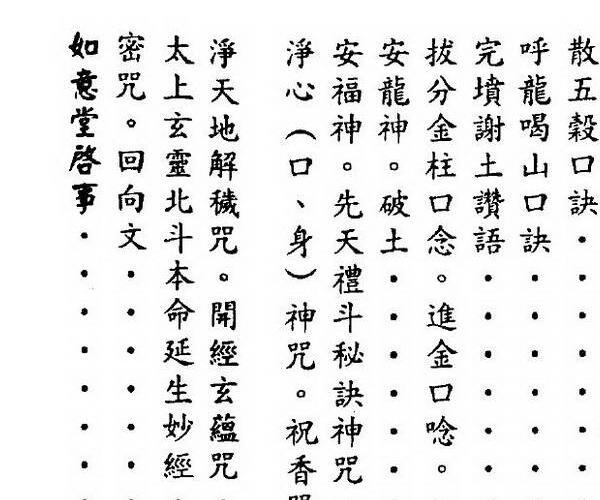 散五穀口訣・・・・・・
呼龍喝山口訣・・・・・
完墳謝土讚語・・・・・
拔分金柱口念。進金口唸。
安龍神。破土・・・・・・
安福神。先天禮斗秘訣神咒・
淨心(口、身)神咒。祝香
淨天地解穢咒。開經玄蘊咒・
太上玄靈北斗本命延生妙經・
密咒。回向文・・・・・・
如意堂啓事・・・・・・・